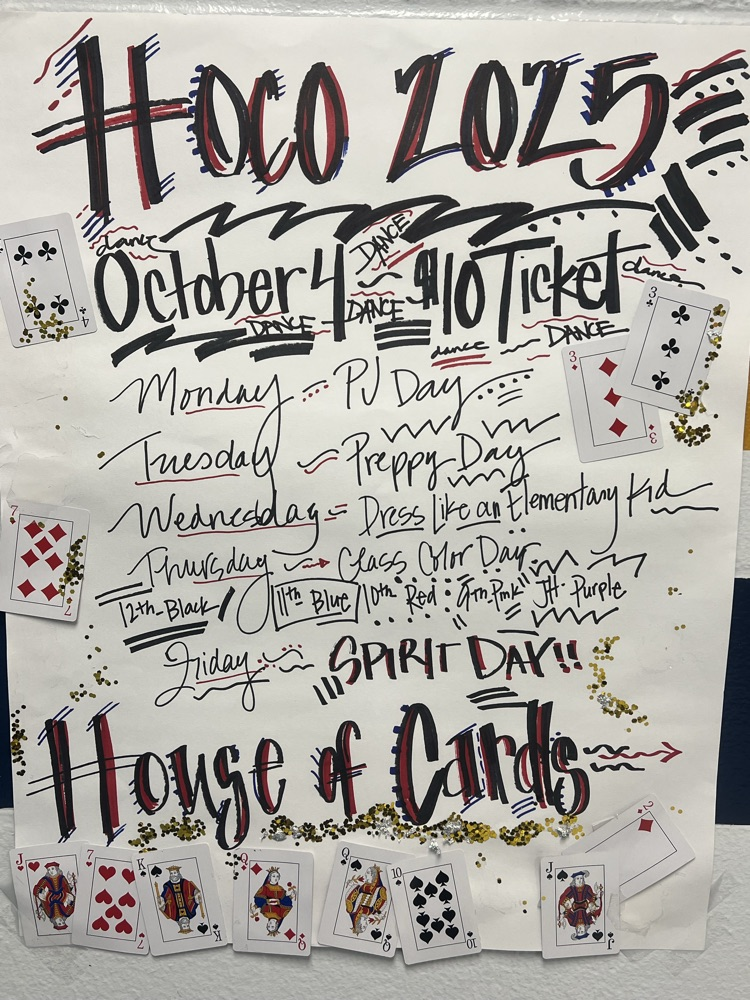 Hoco 2025
dance
DANCE
October 4 ~ $10 Ticket
dance
DANCE
DANCE
dance
DANCE
Monday PJ Day
Tuesday ~ Preppy Day
Wednesday = Dress Like an Elementary Kid
Thursday → Class Color Day
12th-Black / 11th Blue 10th Red 9th-Pink JH-Purple
Friday ~ SPIRIT DAY!!
House of Cards
4
4
3
3
3
7
7
J
7
7
K
K
Q
Q
Q
Q
10
10
J
J
2